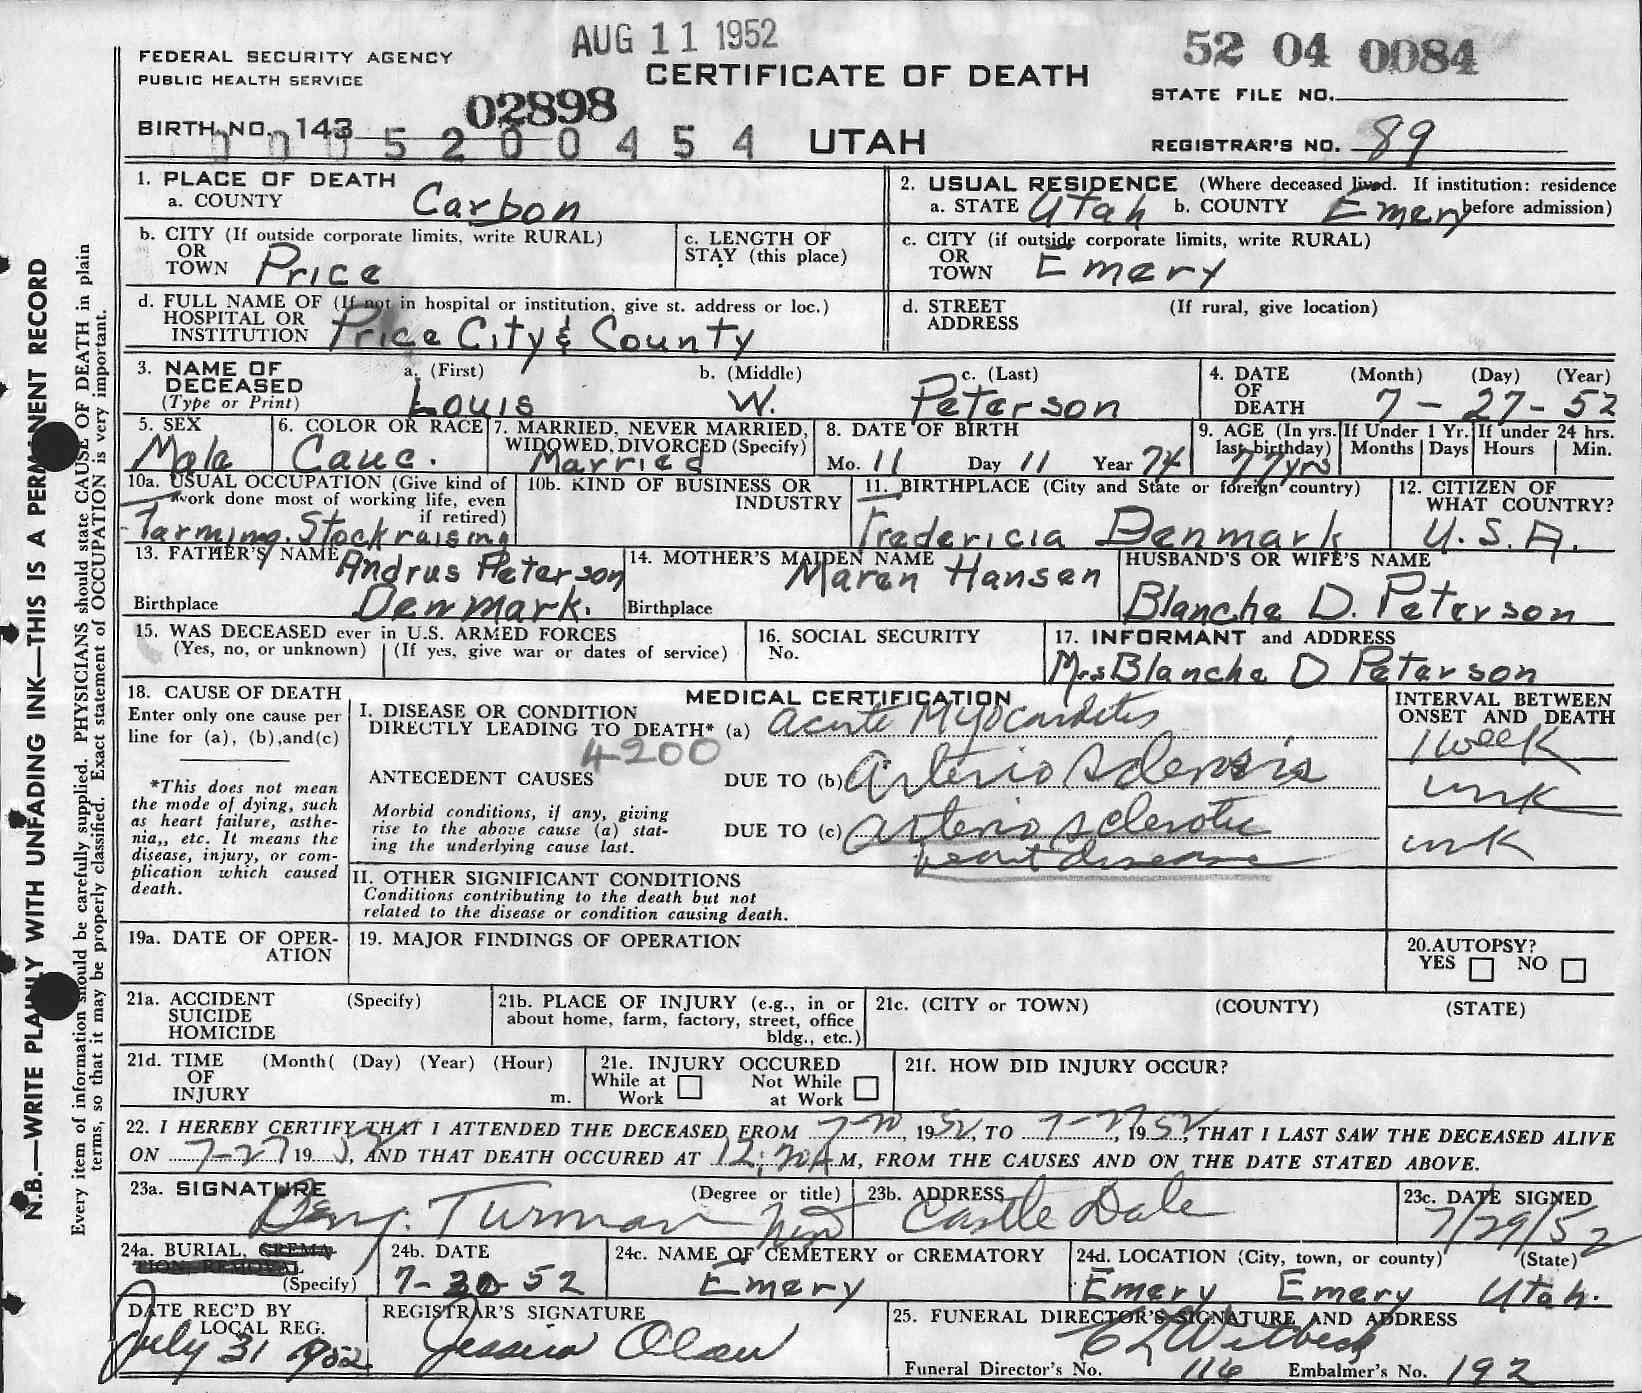 AUG 11 1952
52 04 0084
FEDERAL SECURITY AGENCY
PUBLIC HEALTH SERVICE
CERTIFICATE OF DEATH
STATE FILE NO.
02898
BIRTH NO. 143
5 2 0 0 4 5 4
UTAH
REGISTRAR'S NO. 89
N.B.—WRITE PLAINLY WITH UNFADING INK—THIS IS A PERMANENT RECORD
Every item of information should be carefully supplied. PHYSICIANS should state CAUSE OF DEATH in plain
terms, so that it may be properly classified. Exact statement of OCCUPATION is very important.
1. PLACE OF DEATH
a. COUNTY Carbon
2. USUAL RESIDENCE (Where deceased lived. If institution: residence
a. STATE Utah b. COUNTY Emery before admission)
b. CITY (If outside corporate limits, write RURAL)
OR
TOWN Price
c. LENGTH OF
STAY (this place)
c. CITY (if outside corporate limits, write RURAL)
OR
TOWN Emery
d. FULL NAME OF (If not in hospital or institution, give st. address or loc.)
HOSPITAL OR
INSTITUTION Price City & County
d. STREET (If rural, give location)
ADDRESS
3. NAME OF a. (First) b. (Middle) c. (Last)
DECEASED
(Type or Print) Louis W. Peterson
4. DATE (Month) (Day) (Year)
OF
DEATH 7 - 27 - 52
5. SEX
Male
6. COLOR OR RACE
Cauc.
7. MARRIED, NEVER MARRIED,
WIDOWED, DIVORCED (Specify)
Married
8. DATE OF BIRTH
Mo. 11 Day 11 Year 74
9. AGE (In yrs.
last birthday)
77 yrs
If Under 1 Yr.
Months Days
If under 24 hrs.
Hours Min.
10a. USUAL OCCUPATION (Give kind of
work done most of working life, even
if retired)
Farming. Stockraising
10b. KIND OF BUSINESS OR
INDUSTRY
11. BIRTHPLACE (City and State or foreign country)
Fredericia Denmark
12. CITIZEN OF
WHAT COUNTRY?
U.S.A.
13. FATHER'S NAME Andrus Peterson
Birthplace Denmark.
14. MOTHER'S MAIDEN NAME
Maren Hansen
Birthplace
HUSBAND'S OR WIFE'S NAME
Blanche D. Peterson
15. WAS DECEASED ever in U.S. ARMED FORCES
(Yes, no, or unknown) (If yes, give war or dates of service)
16. SOCIAL SECURITY
No.
17. INFORMANT and ADDRESS
Mrs Blanche D Peterson
18. CAUSE OF DEATH
Enter only one cause per
line for (a), (b), and (c)
*This does not mean
the mode of dying, such
as heart failure, asthe-
nia,, etc. It means the
disease, injury, or com-
plication which caused
death.
MEDICAL CERTIFICATION
I. DISEASE OR CONDITION
DIRECTLY LEADING TO DEATH* (a) Acute Myocarditis
4200
ANTECEDENT CAUSES DUE TO (b) Arterio Sclerosis
Morbid conditions, if any, giving
rise to the above cause (a) stat-
ing the underlying cause last.
DUE TO (c) Arterio sclerotic
heart disease
INTERVAL BETWEEN
ONSET AND DEATH
1 week
unk
unk
II. OTHER SIGNIFICANT CONDITIONS
Conditions contributing to the death but not
related to the disease or condition causing death.
19a. DATE OF OPER-
ATION
19. MAJOR FINDINGS OF OPERATION
20. AUTOPSY?
YES NO
21a. ACCIDENT (Specify)
SUICIDE
HOMICIDE
21b. PLACE OF INJURY (e.g., in or
about home, farm, factory, street, office
bldg., etc.)
21c. (CITY or TOWN) (COUNTY) (STATE)
21d. TIME (Month( (Day) (Year) (Hour)
OF
INJURY m.
21e. INJURY OCCURED
While at Work
Not While at Work
21f. HOW DID INJURY OCCUR?
22. I HEREBY CERTIFY THAT I ATTENDED THE DECEASED FROM 7-20, 1952, TO 7-27, 1952, THAT I LAST SAW THE DECEASED ALIVE
ON 7-27 1952, AND THAT DEATH OCCURED AT 12:20 A M, FROM THE CAUSES AND ON THE DATE STATED ABOVE.
23a. SIGNATURE (Degree or title)
Benj. Turman
23b. ADDRESS
Castle Dale
23c. DATE SIGNED
7/29/52
24a. BURIAL, CREMA-
TION, REMOVAL
(Specify)
24b. DATE
7-30-52
24c. NAME OF CEMETERY or CREMATORY
Emery
24d. LOCATION (City, town, or county) (State)
Emery Emery Utah.
DATE REC'D BY
LOCAL REG.
July 31 1952
REGISTRAR'S SIGNATURE
Jessica Olsen
25. FUNERAL DIRECTOR'S SIGNATURE AND ADDRESS
Funeral Director's No. 116 Embalmer's No. 192